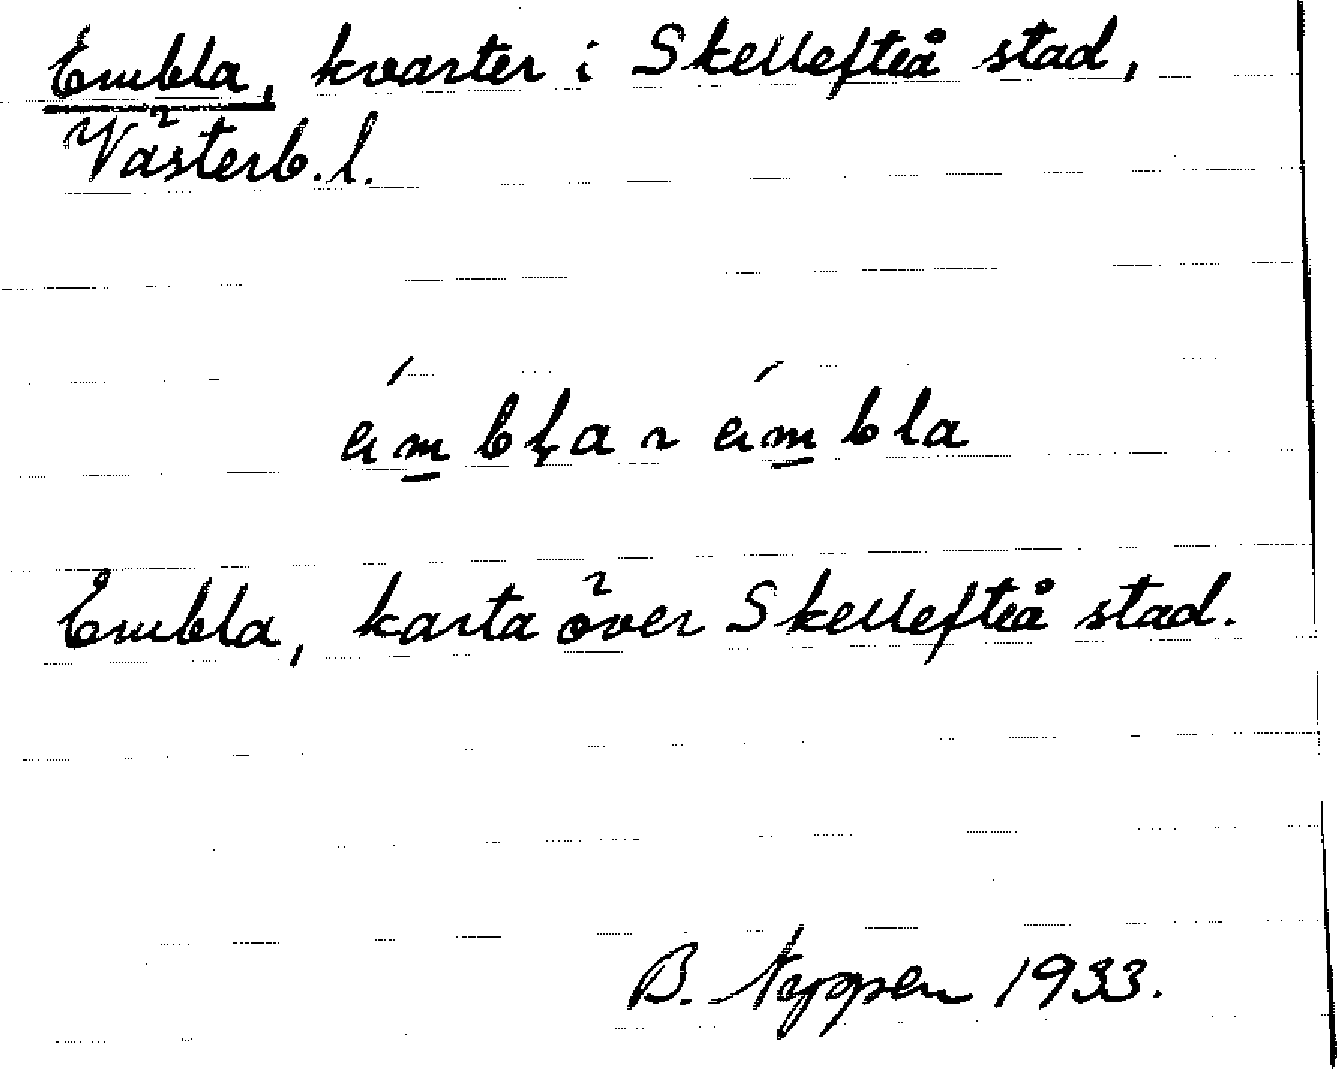 Embla, kvarter i Skellefteå stad,
Västerb. l.
ä́m̲bl̦a ~ ä́m̲bla
Embla, karta över Skellefteå stad.
B. 1933.